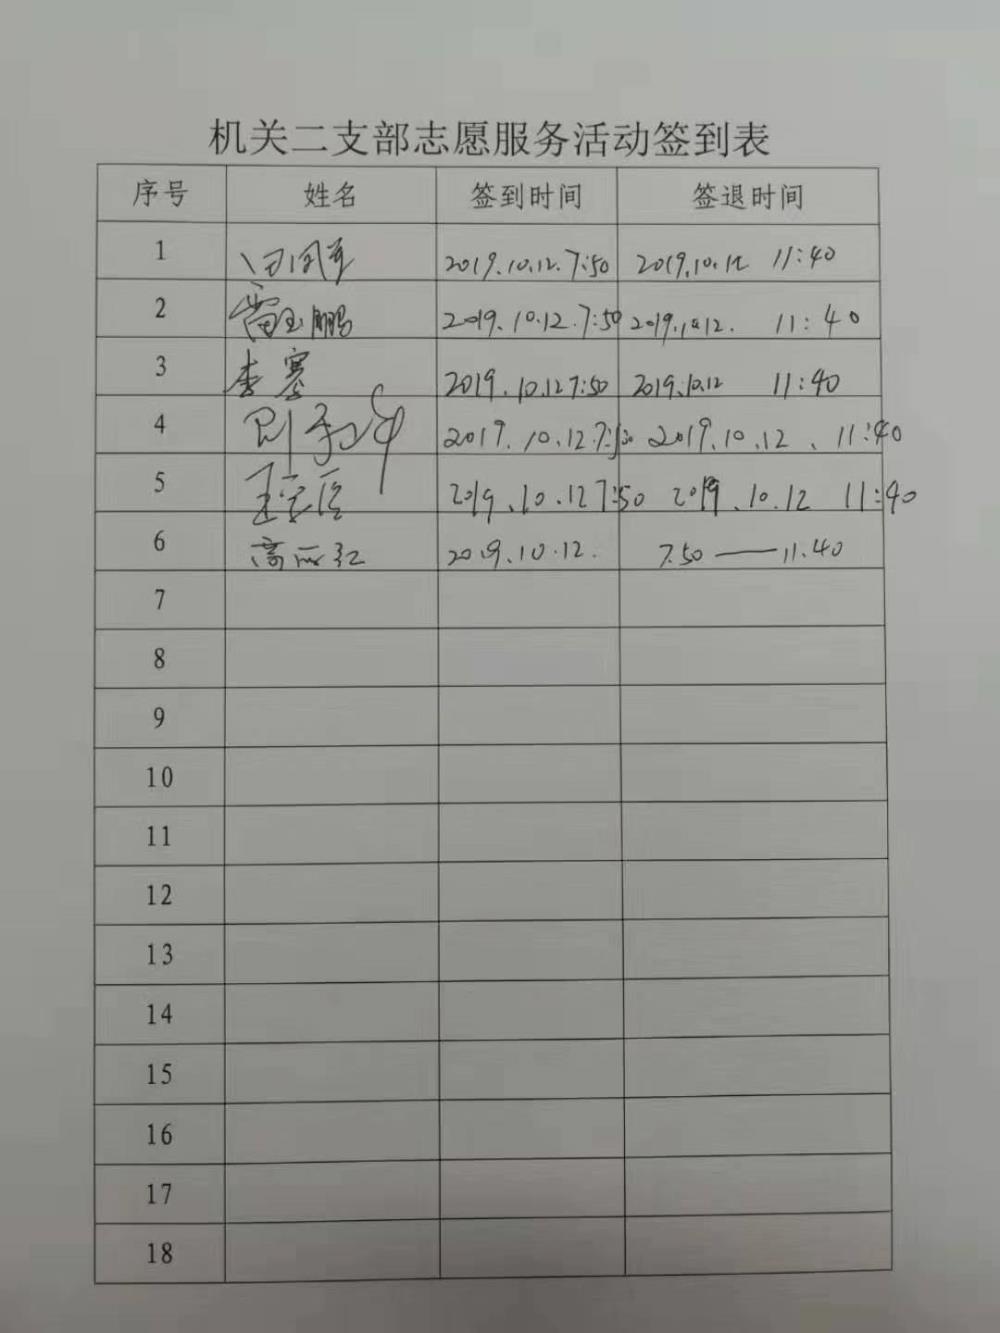 机关二支部志愿服务活动签到表
序号 姓名 签到时间 签退时间
1 2019.10.12.7:50 2019.10.12 11:40
2 雷玉鹏 2019.10.12.7:50 2019.10.12. 11:40
3 李 2019.10.12 7:50 2019.10.12 11:40
4 2019.10.12.7:50 2019.10.12、11:40
5 2019.10.12 7:50 2019.10.12 11:40
6 高丽红 2019.10.12. 7.50——11.40
7
8
9
10
11
12
13
14
15
16
17
18